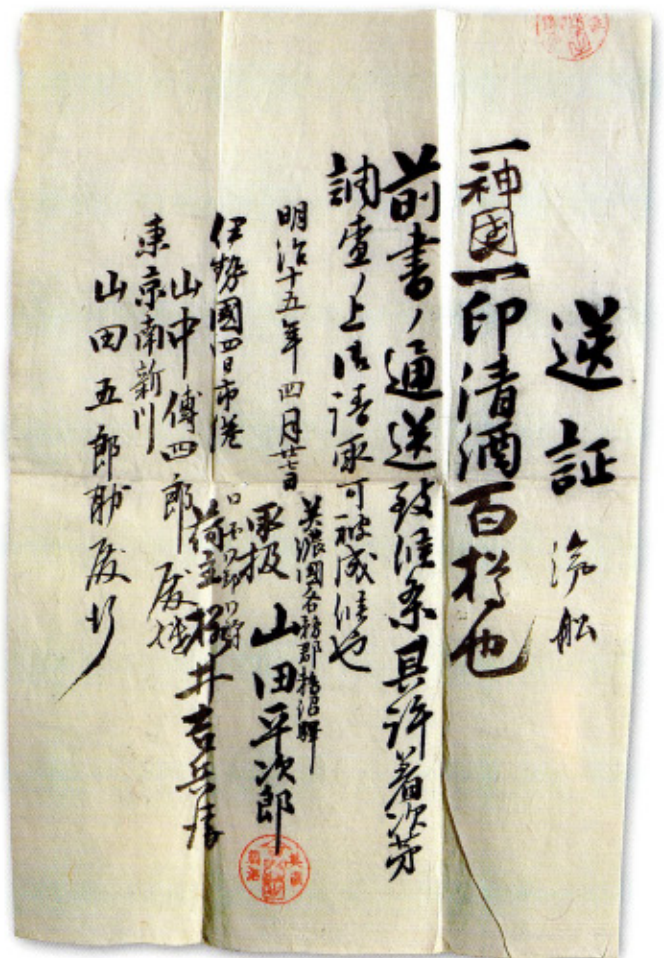 送証 汽船
一神國一印清酒百樽也
前書ノ通送致候条具許着次第
調査ノ上御請取可被成候也
明治十五年四月廿七日
美濃國各務郡鵜沼驛
取扱 山田平次郎
荷主 桜井吉兵衛
伊勢國四日市港
山中傳四郎殿
東京南新川
山田五郎助殿行